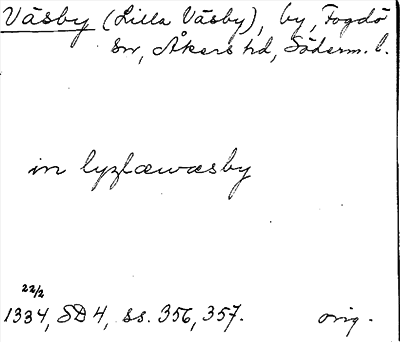 Väsby (Lilla Väsby), by, Fogdö
sn, Åkers hd, Söderm. l.
in lyzlæwæsby
22/2
1334, SD 4, ss. 356, 357. orig.